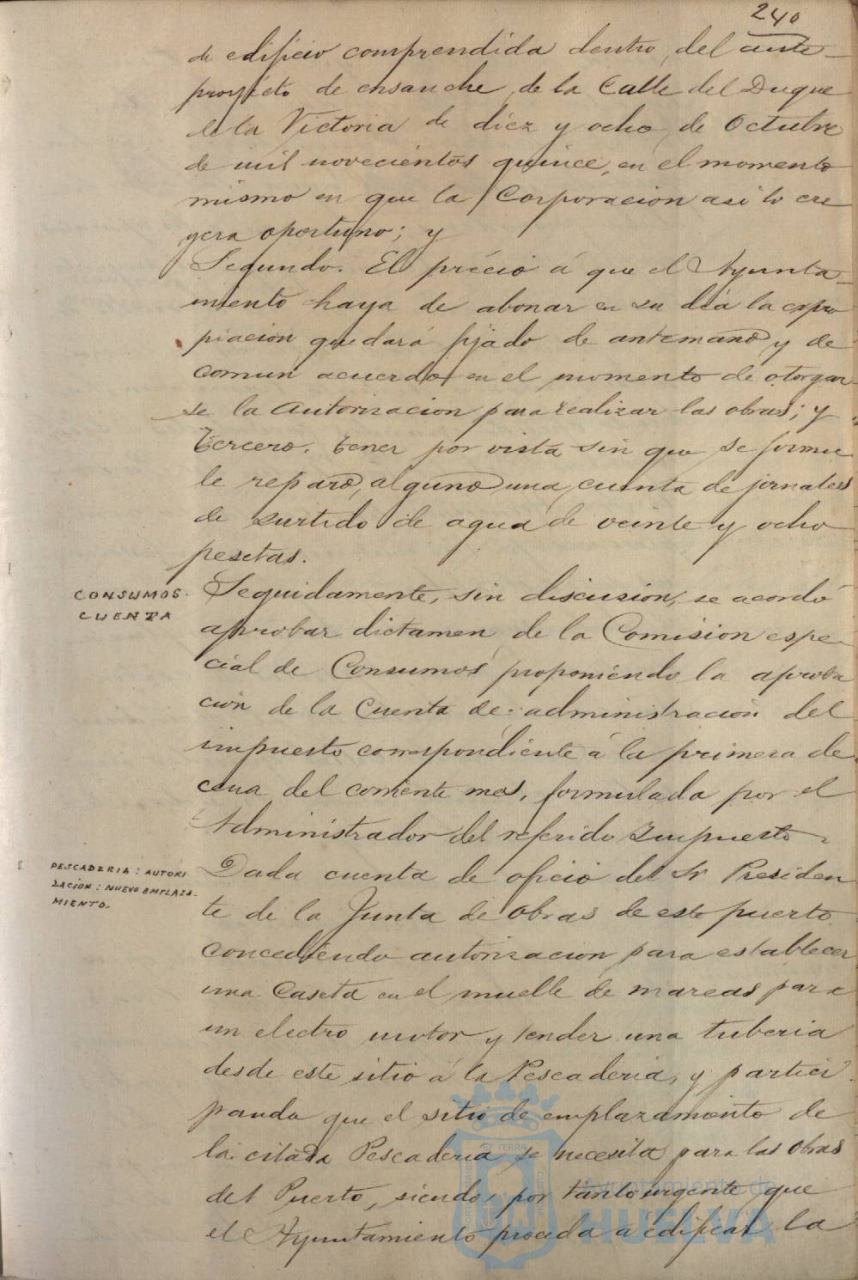 240
de edificio comprendida dentro del ante-
proyecto de ensanche de la Calle del Duque
de la Victoria de diez y ocho de Octubre
de mil novecientos quince, en el momento
mismo en que la Corporacion asi lo cre
yera oportuno; y
Segundo. El précio á que el Ayunta-
miento haya de abonar en su dia la expro
piacion quedará fijado de antemano y de
comun acuerdo en el momento de otorgar
se la autorizacion para realizar las obras; y
Tercero. Tener por vista sin que se formu
le reparo alguno una cuenta de jornales
de surtido de agua de veinte y ocho
pesetas.
CONSUMOS.
CUENTA
Seguidamente, sin discusion, se acordó
aprobar dictamen de la Comision espe-
cial de Consumos proponiendo la aproba
ción de la Cuenta de administracion del
impuesto correspondiente á la primera de
cena del corriente mes, formulada por el
Administrador del referido Impuesto.
PESCADERIA: AUTORI
ZACIÓN: NUEVO EMPLAZA-
MIENTO.
Dada cuenta de oficio del Sr Presiden
te de la Junta de Obras de este puerto
concediendo autorizacion para establecer
una Caseta en el muelle de mareas para
un electro motor y tender una tuberia
desde este sitio á la Pescaderia, y partici
pando que el sitio de emplazamiento de
la citada Pescaderia se necesita para las obras
del Puerto, siendo por tanto urgente que
el Ayuntamiento proceda a edificar la
Ayuntamiento de
HUELVA